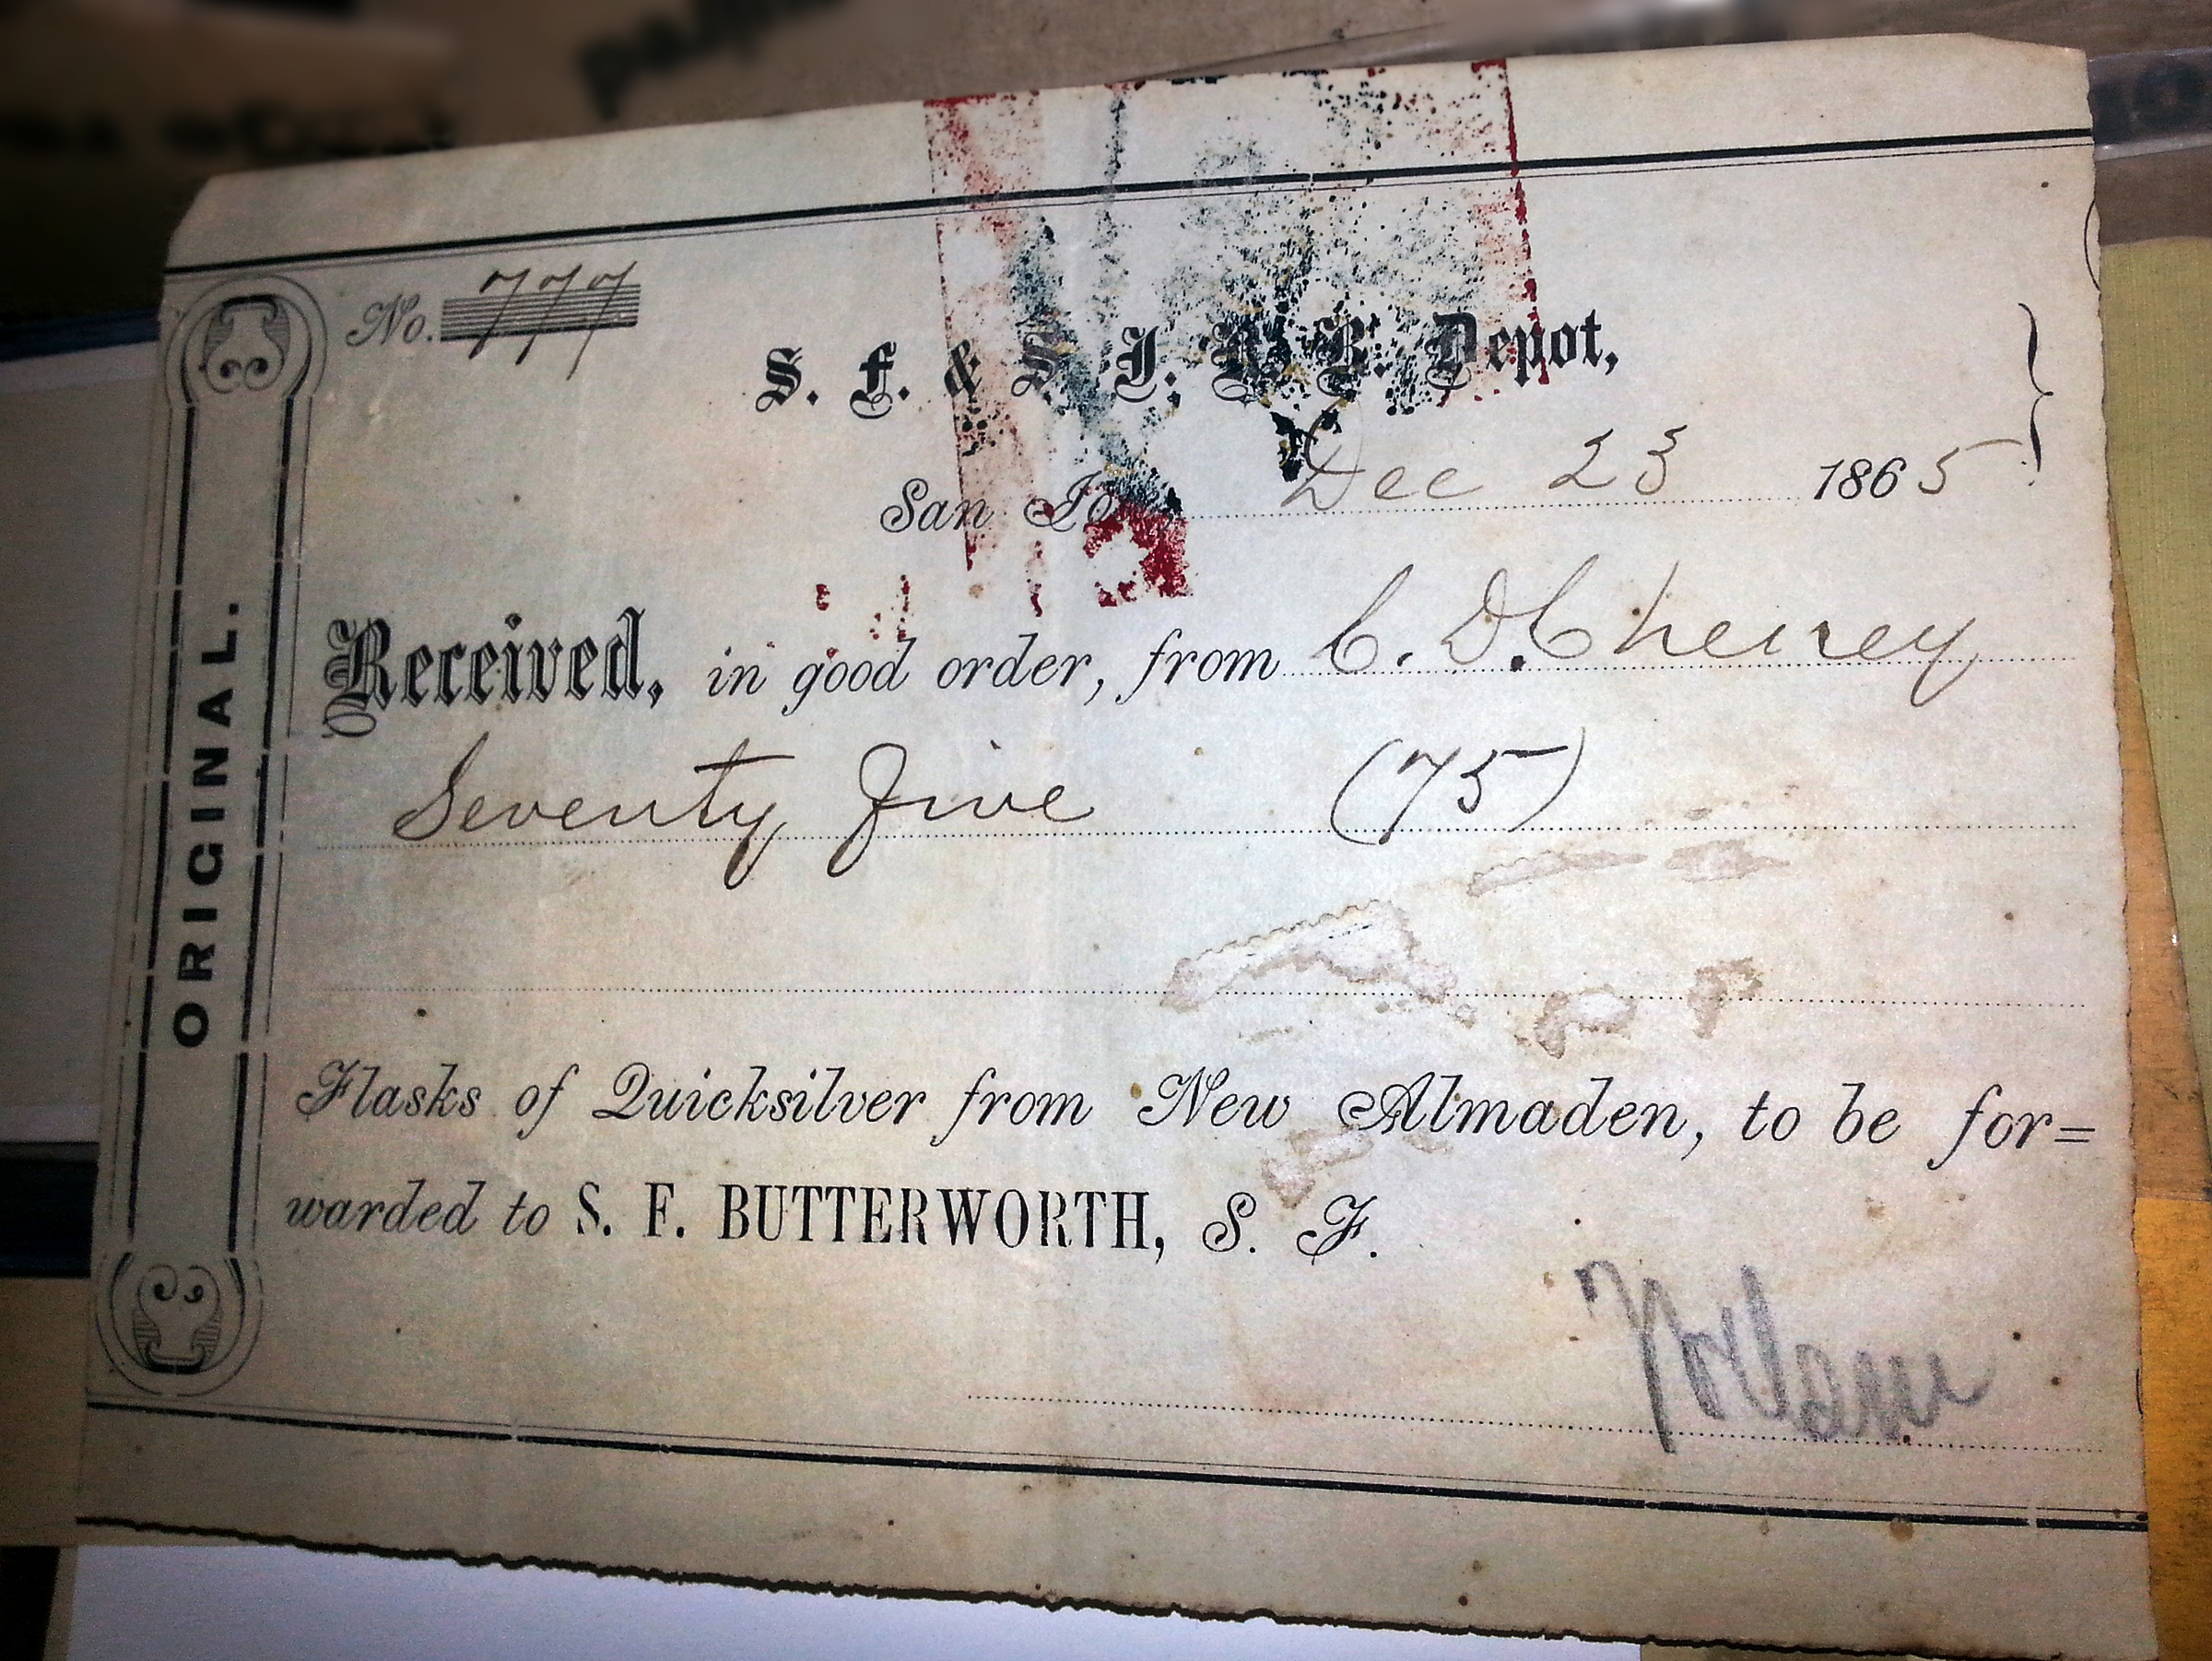 ORIGINAL.
No. 777
S. F. & S. J. R. R. Depot,
San Jo Dec 23 1865
Received, in good order, from C. D. Cheney
Seventy Five (75)
Flasks of Quicksilver from New Almaden, to be for=
warded to S. F. BUTTERWORTH, S. F.